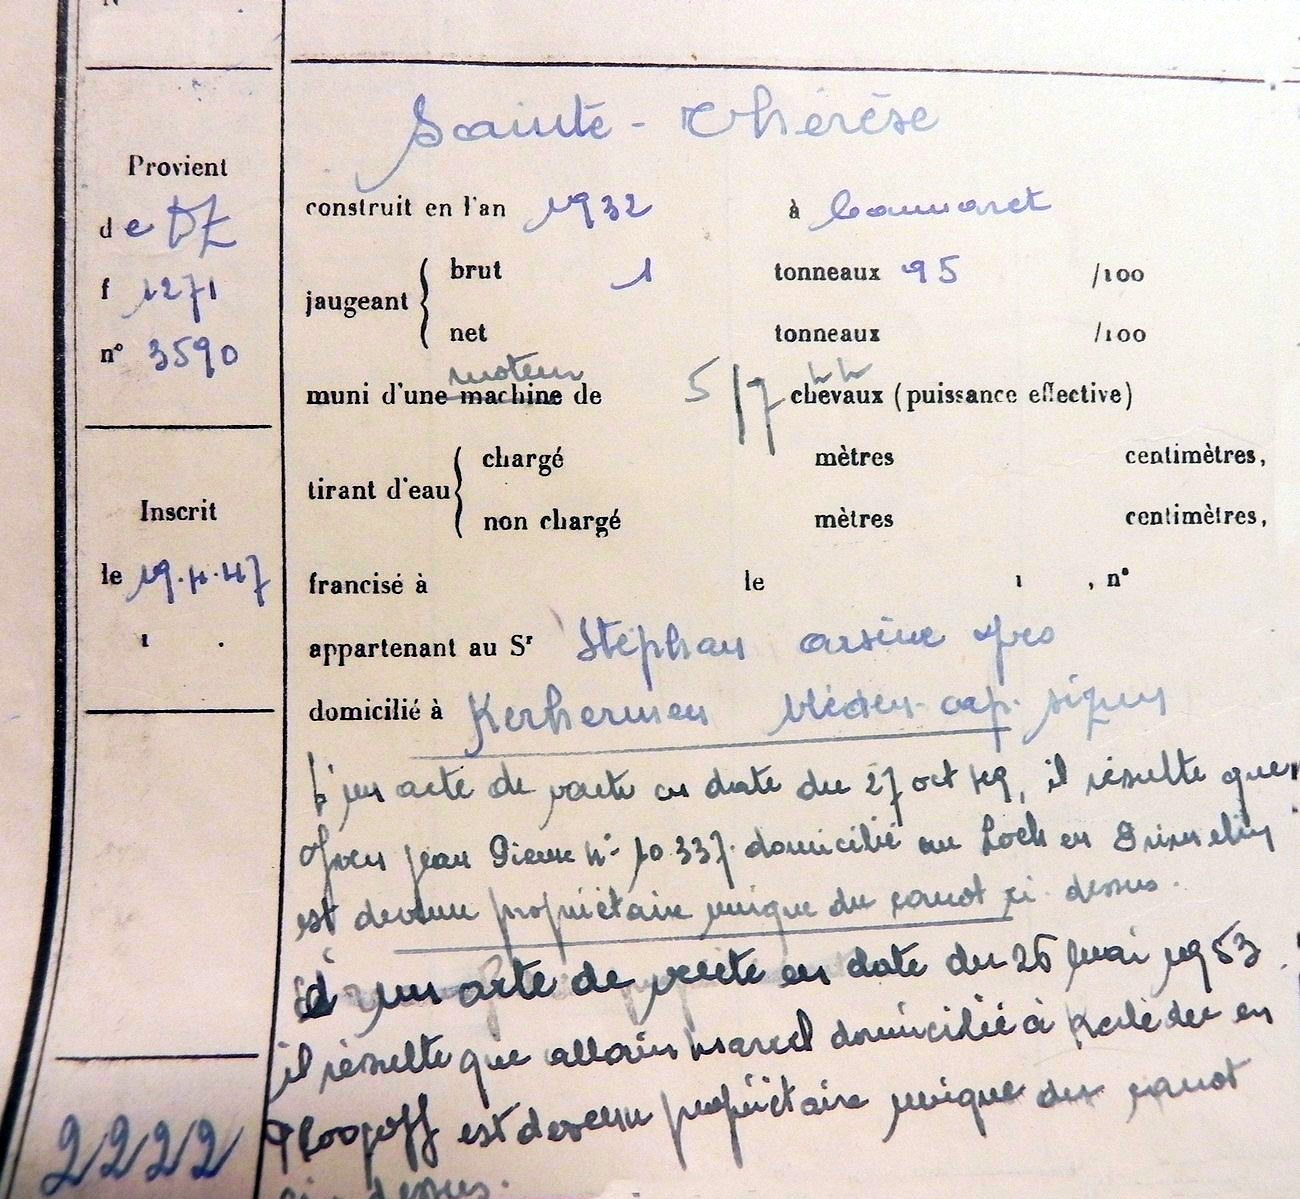 Provient
de DZ
f 1271
n° 3590
Inscrit
le 19.4.47
2222
Sainte-Thérèse
construit en l'an 1932 à Camaret
jaugeant brut 1 tonneaux 95 /100
net tonneaux /100
moteur
muni d'une machine de 5/7 chevaux (puissance effective)
tirant d'eau chargé mètres centimètres,
non chargé mètres centimètres,
francisé à le , n°
appartenant au Sr Stéphan arsène
domicilié à Kerhermen cap.
d'un acte de vente en date du 27 oct 49, il résulte que
jean Pierre n° 10.337 domicilié au Loch en Primelin
est devenu propriétaire unique du canot ci-dessus.
d'un acte de vente en date du 26 mai 1953
il résulte que allain marcel domicilié à en
Plogoff est devenu propriétaire unique du canot
ci-dessus.